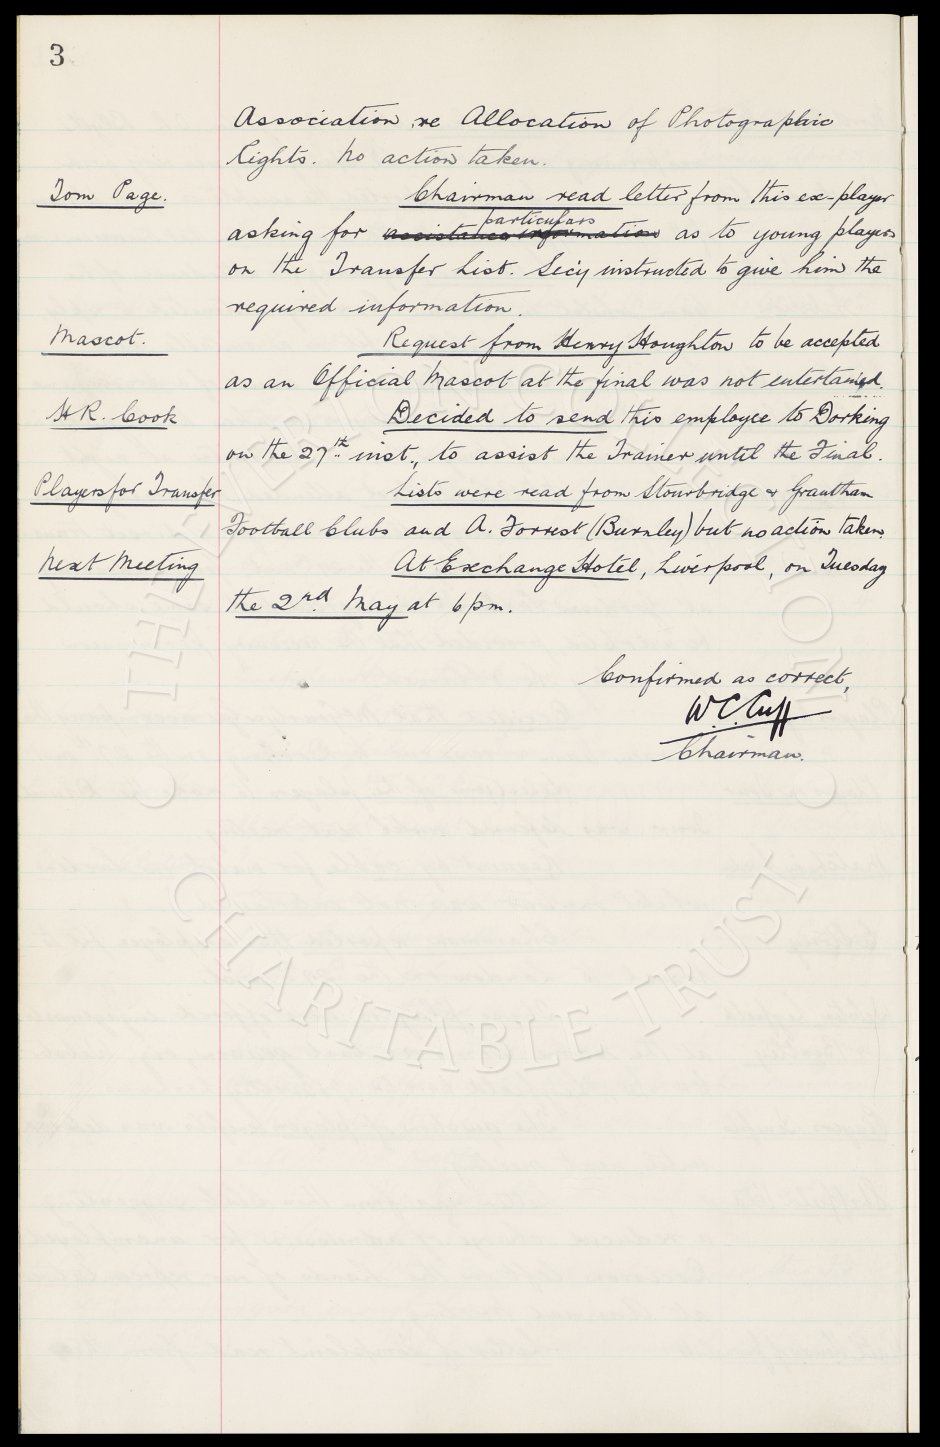 3
Association re Allocation of Photographic
Rights. No action taken.
Tom Page. Chairman read letter from this ex-player
particulars
asking for assistance information as to young players
on the Transfer List. Secy instructed to give him the
required information.
Mascot. Request from Henry Houghton to be accepted
as an Official Mascot at the final was not entertained.
H R. Cook Decided to send this employee to Dorking
on the 27th inst., to assist the Trainer until the Final.
Players for Transfer Lists were read from Stourbridge & Grantham
Football Clubs and A. Forrest (Burnley) but no action taken
Next Meeting At Exchange Hotel, Liverpool, on Tuesday
the 2nd May at 6 pm.
Confirmed as correct,
W.C. Cuff
Chairman.
THE EVERTON COLLECTION
CHARITABLE TRUST